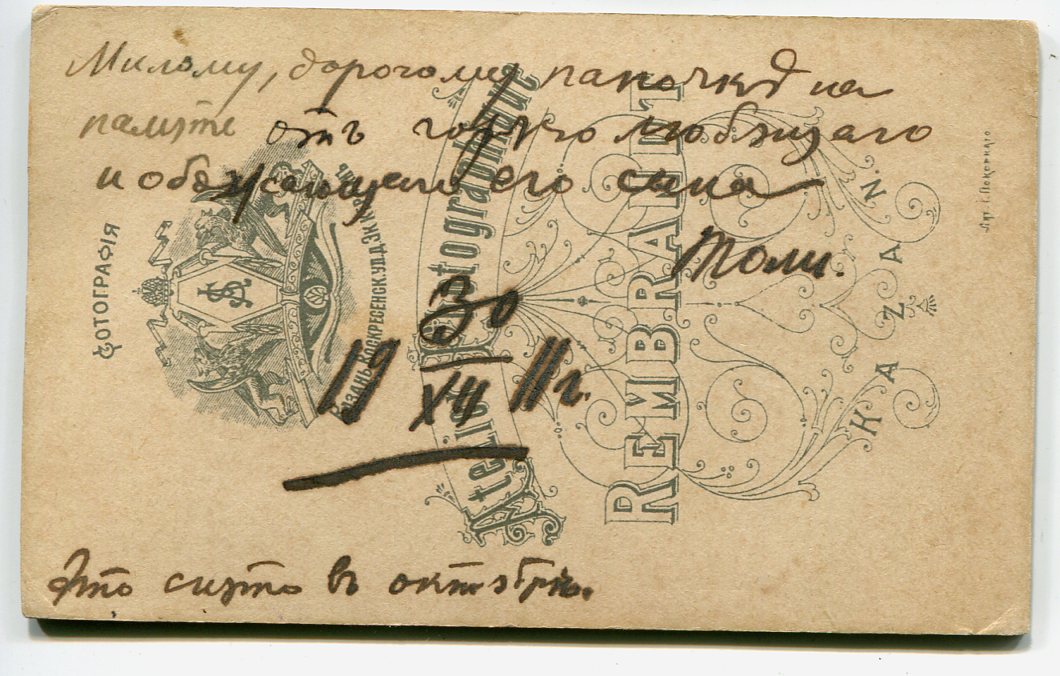 Милому, дорогому папочкѣ на
память отъ горячо любящаго
и обожающаго его сына
Толи.
19 30/XII 11 г.
Это снято въ октябрѣ.
ФОТОГРАФІЯ
КАЗАНЬ ВОСКРЕСЕНСК. УЛ. Д.
Atelier Photographique
REMBRANDT
KAZAN.